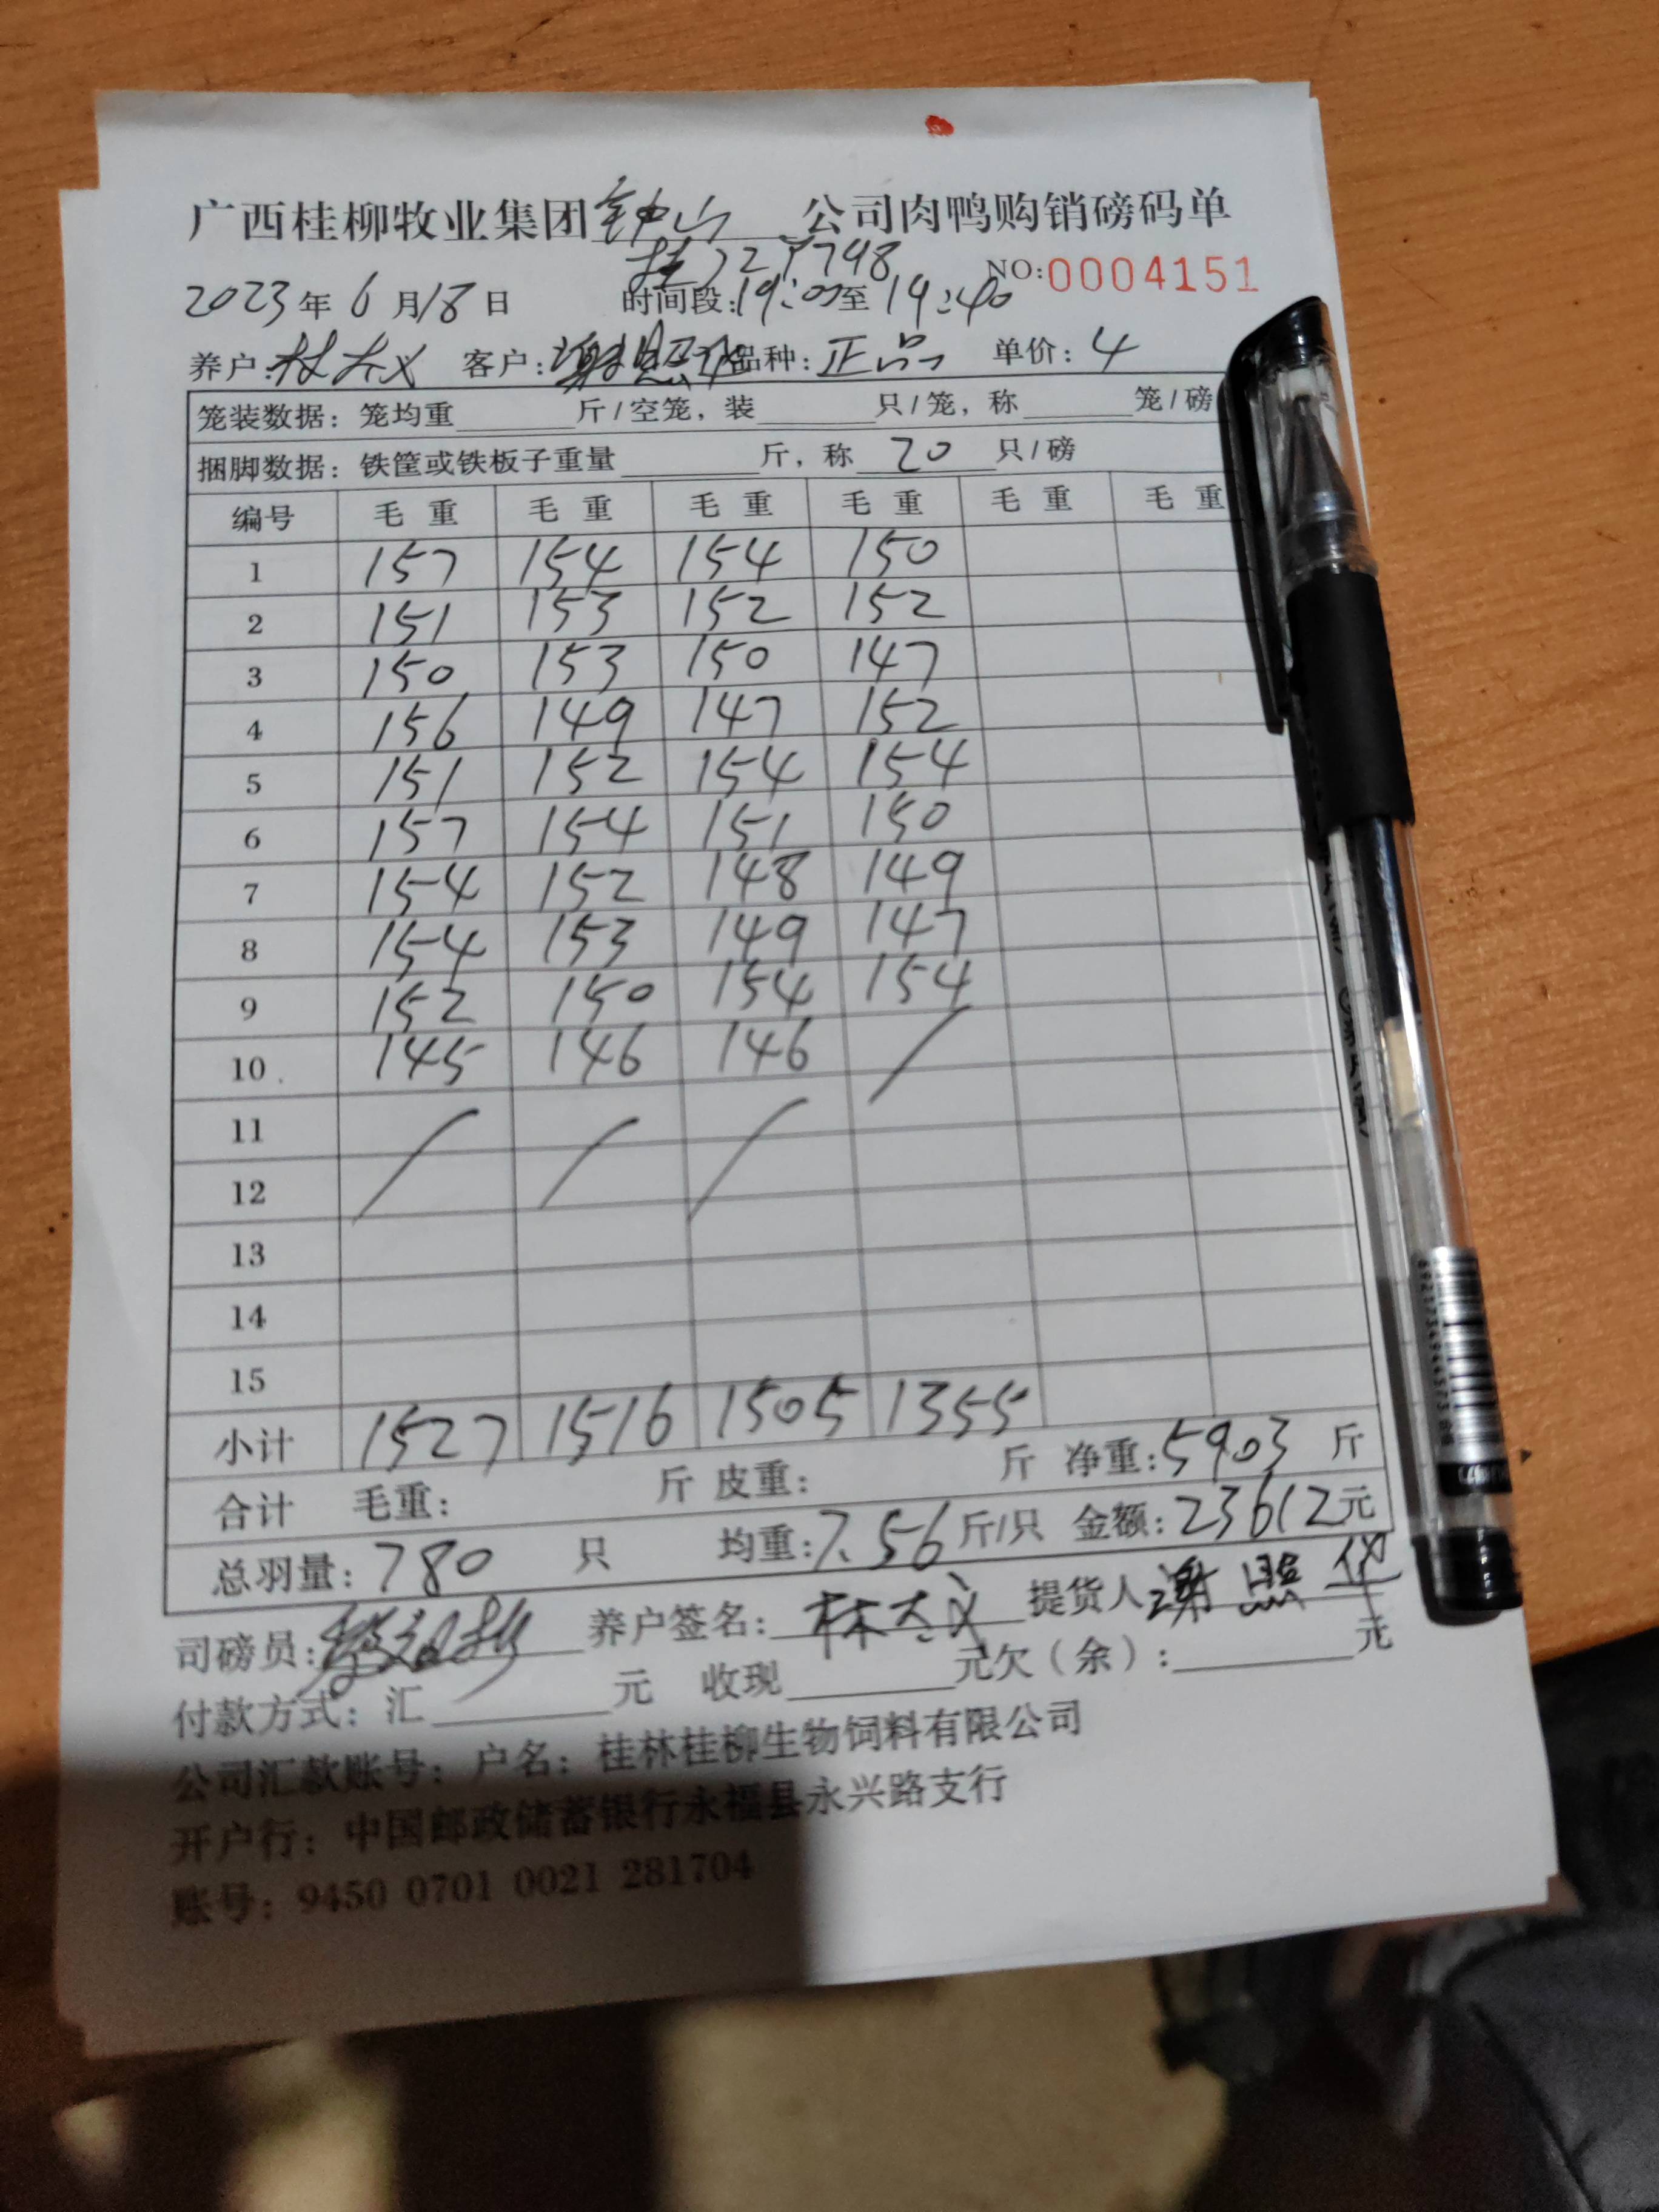 广西桂柳牧业集团钟山公司肉鸭购销磅码单
NO:0004151
2023年6月18日 时间段:19:00至19:40
养户:林大义 客户:谢照华 品种:正品 单价:4
笼装数据:笼均重 斤/空笼,装 只/笼,称 笼/磅
捆脚数据:铁筐或铁板子重量 斤,称 20 只/磅
编号 毛重 毛重 毛重 毛重 毛重 毛重
1 157 154 154 150
2 151 153 152 152
3 150 153 150 147
4 156 149 147 152
5 151 152 154 154
6 157 154 151 150
7 154 152 148 149
8 154 153 149 147
9 152 150 154 154
10 145 146 146 /
11 / / /
12
13
14
15
小计 1527 1516 1505 1355
合计 毛重: 斤 皮重: 斤 净重:5903 斤
总羽量:780 只 均重:7.56 斤/只 金额:23612元
司磅员: 养户签名:林大义 提货人谢照华
付款方式:汇 元 收现 元欠(余): 元
公司汇款账号:户名:桂林桂柳生物饲料有限公司
开户行:中国邮政储蓄银行永福县永兴路支行
账号:9450 0701 0021 281704